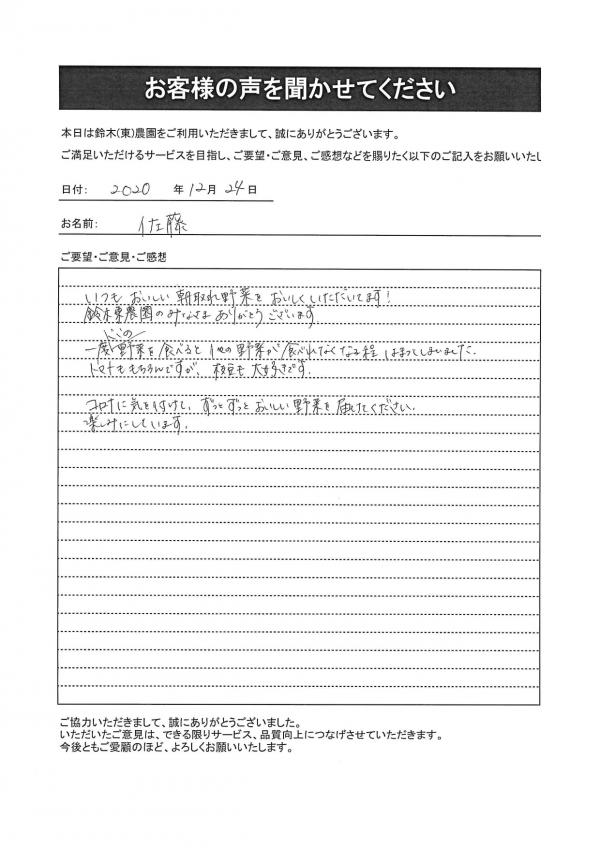 お客様の声を聞かせてください
本日は鈴木(東)農園をご利用いただきまして、誠にありがとうございます。
ご満足いただけるサービスを目指し、ご要望・ご意見、ご感想などを賜りたく以下のご記入をお願いいたし
日付: 2020 年 12月 24日
お名前: 佐藤
ご要望・ご意見・ご感想
いつも おいしい 朝取れ野菜を おいしくいただいてます!
鈴木東農園のみなさま ありがとうございます
ここの
一度野菜を食べると 他の野菜が食べれなくなる程 はまってしまいました.
トマトももちろんですが、枝豆も大好きです.
コロナに気を付けて, ずっとずっとおいしい野菜を届けてください.
楽しみにしています.
ご協力いただきまして、誠にありがとうございました。
いただいたご意見は、できる限りサービス、品質向上につなげさせていただきます。
今後ともご愛顧のほど、よろしくお願いいたします。